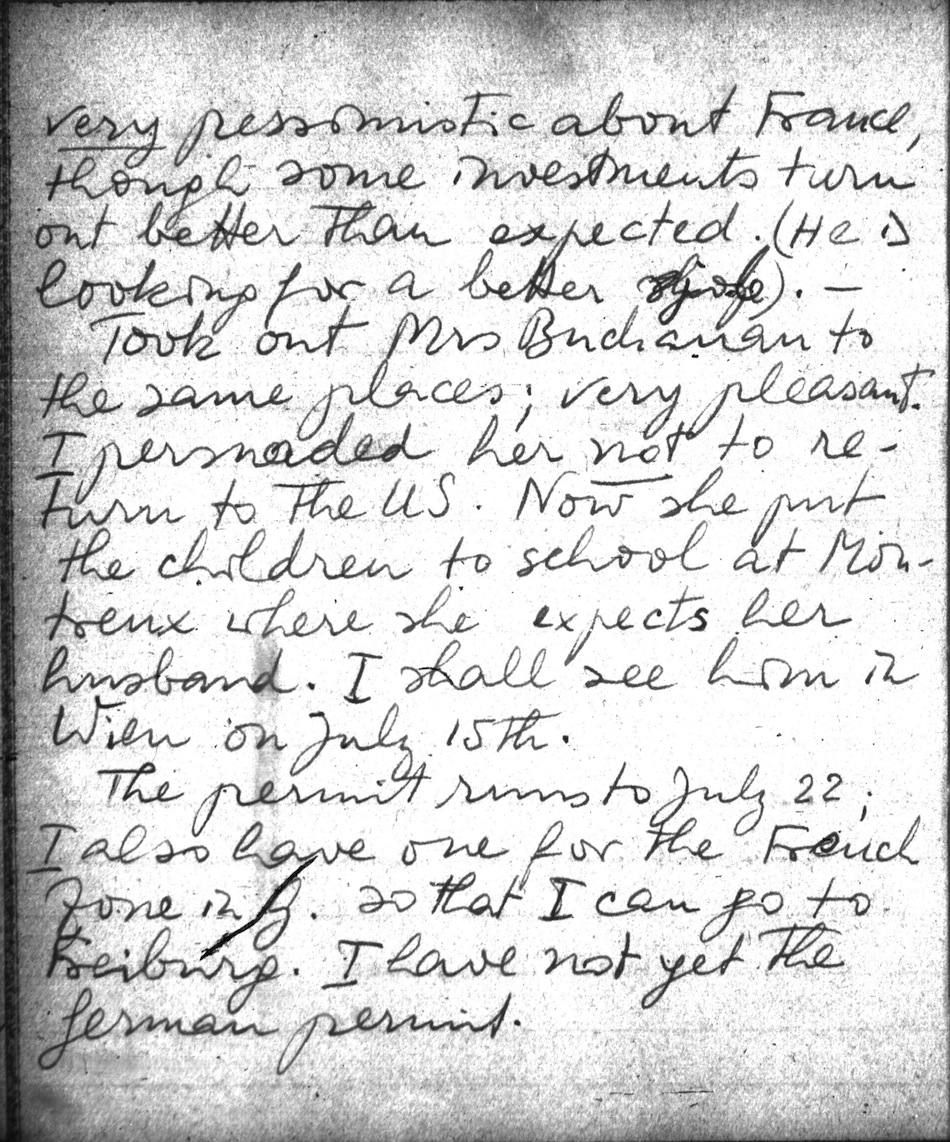 very pessimistic about France,
though some investments turn
out better than expected. (He is
looking for a better ). —
Took out Mrs Buchanan to
the same places; very pleasant.
I persuaded her not to re-
turn to the US. Now she put
the children to school at Mon-
treux where she expects her
husband. I shall see him in
Wien on July 15th.
The permit runs to July 22;
I also have one for the French
Zone in G. so that I can go to
Freiburg. I have not yet the
German permit.